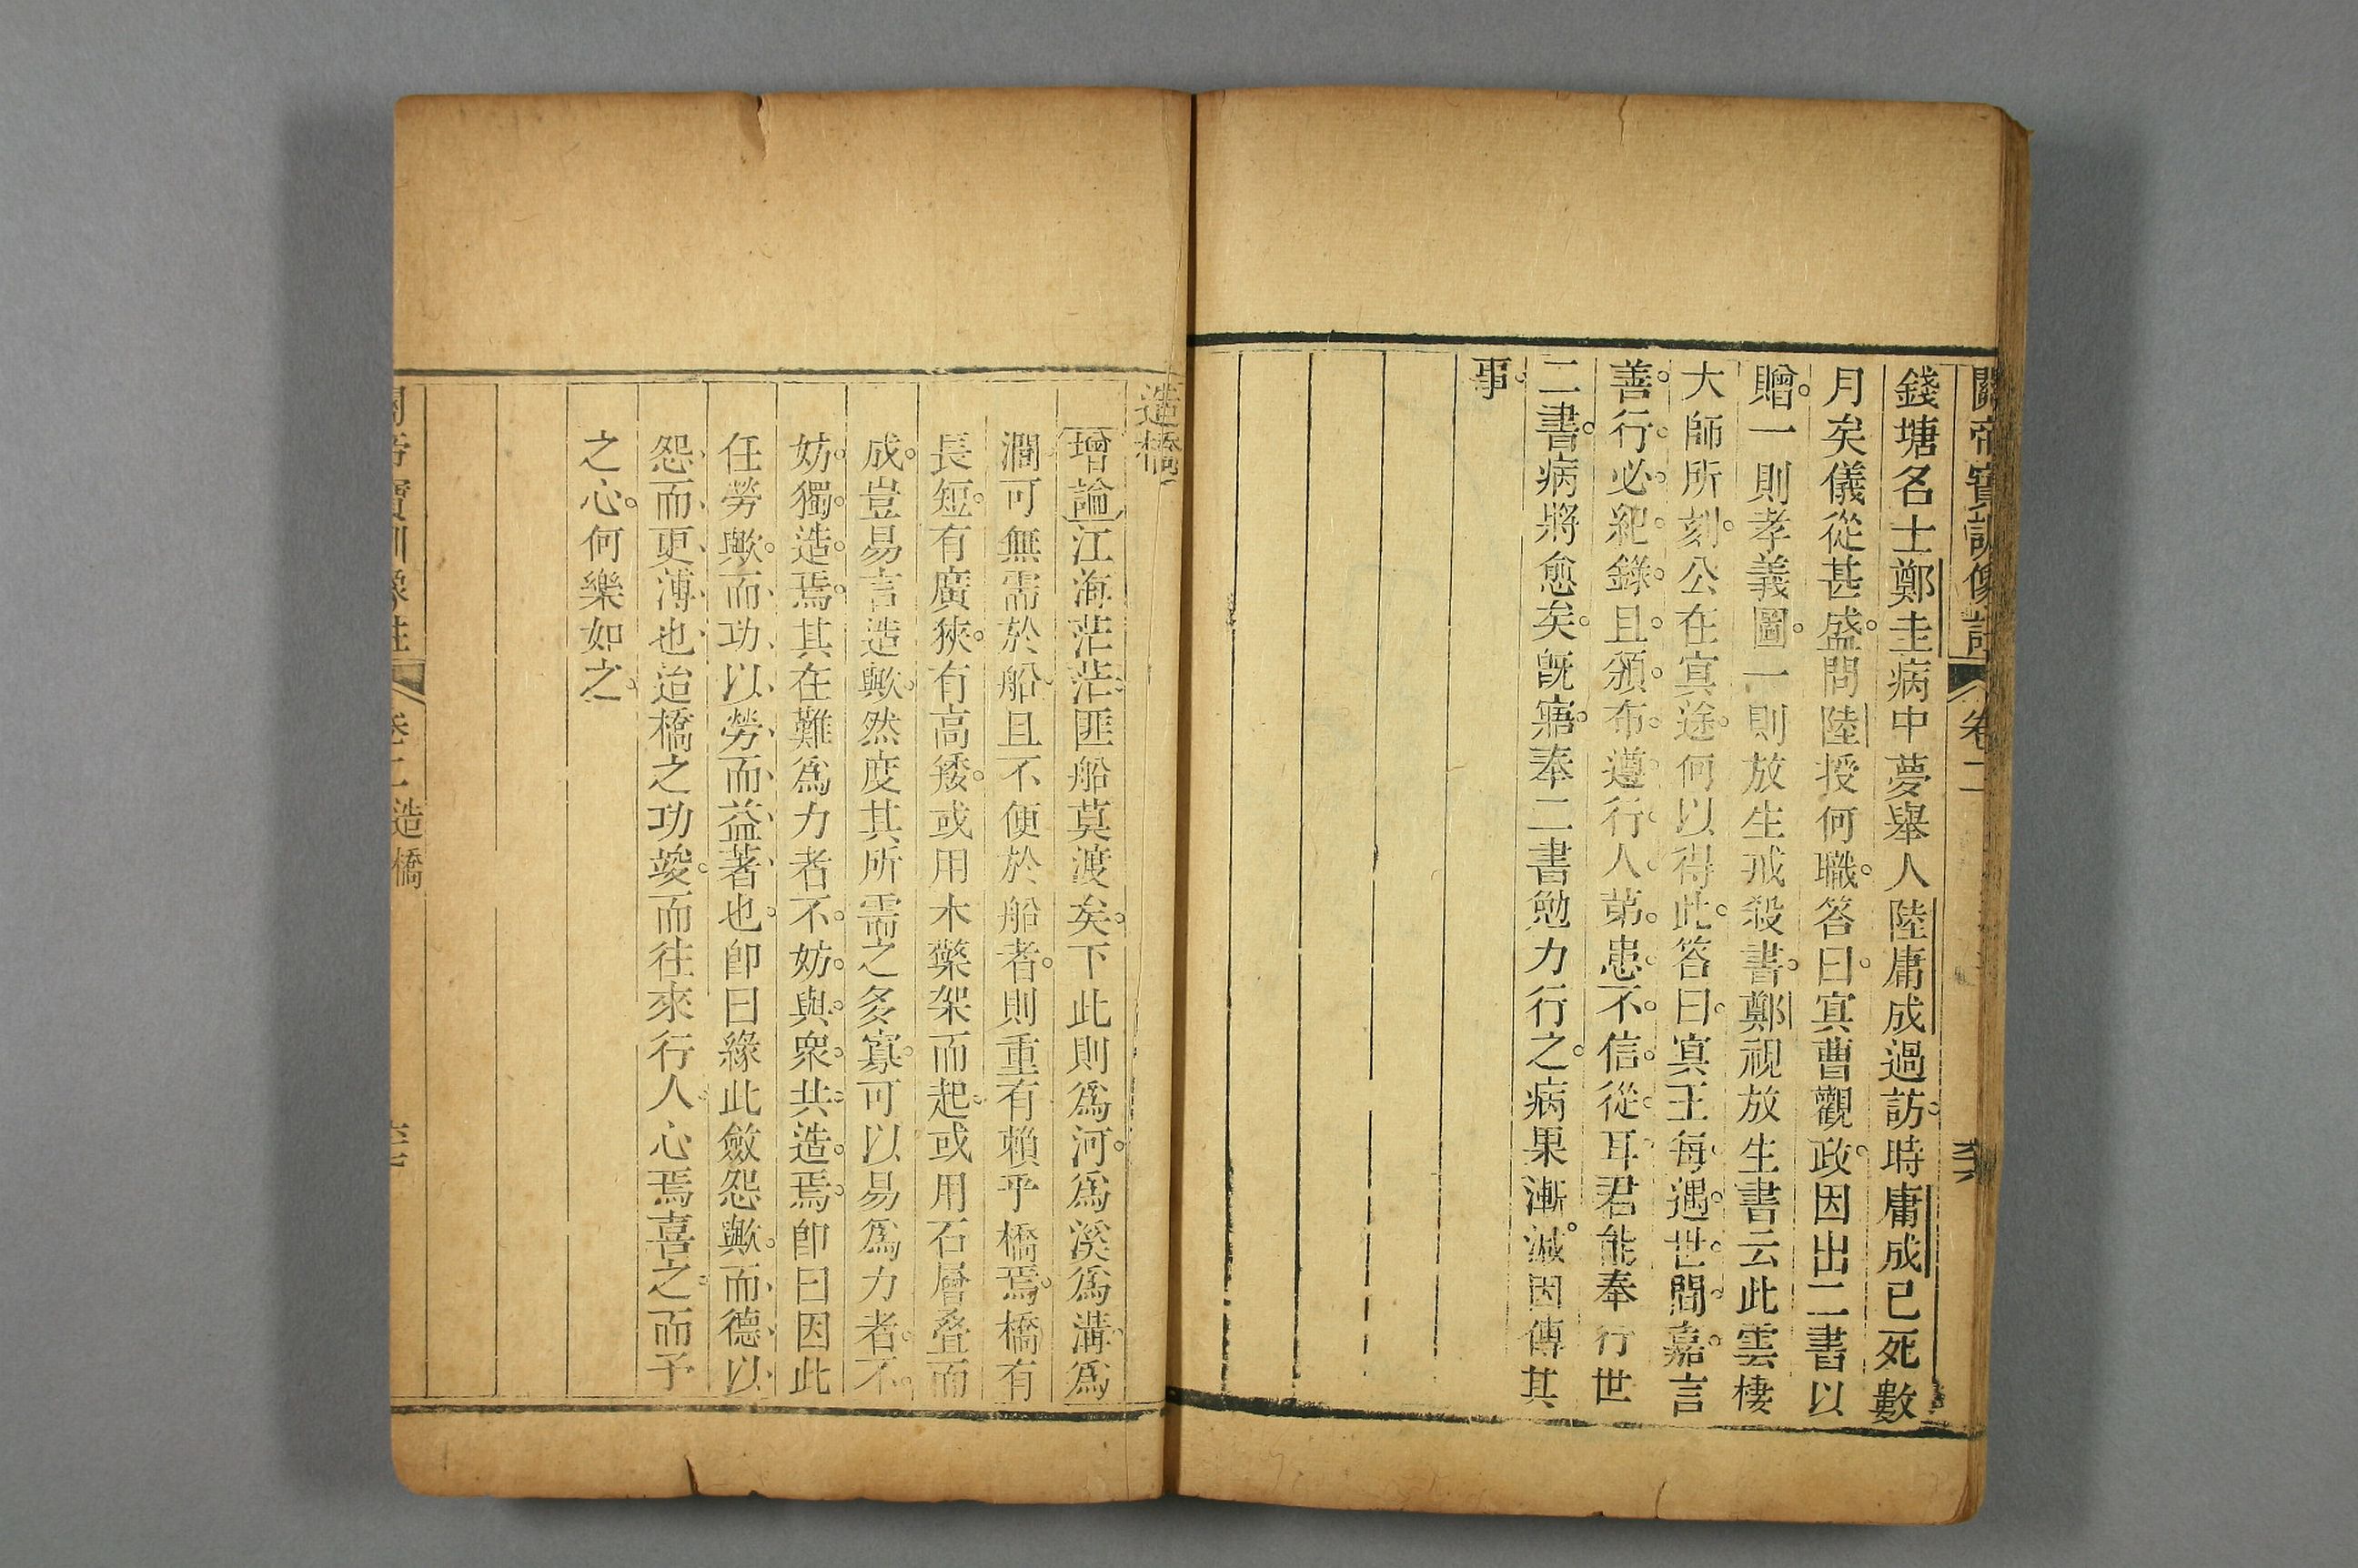 關帝寶訓像註 卷二
錢塘名士鄭圭病中夢舉人陸庸成過訪時庸成已死數
月矣儀從甚盛問陸授何職答曰寘曹觀政因出二書以
贈一則孝義圖一則放生戒殺書鄭視放生書云此雲棲
大師所刻公在寘途何以得此答曰寘王每遇世間嘉言
善行必紀錄且頒布遵行人第患不信從耳君能奉行世
二書病將愈矣旣寤奉二書勉力行之病果漸減因傳其
事
造橋
增論江海茫茫匪船莫渡矣下此則爲河爲溪爲溝爲
澗可無需於船且不便於船者則重有賴乎橋焉橋有
長短有廣狹有高矮或用木藥架而起或用石層叠而
成豈易言造歟然度其所需之多寡可以易爲力者不
妨獨造焉其在難爲力者不妨與衆共造焉卽曰因此
任勞歟而功以勞而益著也卽曰緣此斂怨歟而德以
怨而更溥也迨橋之功竣而往來行人心焉喜之而予
之心何樂如之
關帝寶訓像註 卷二 造橋